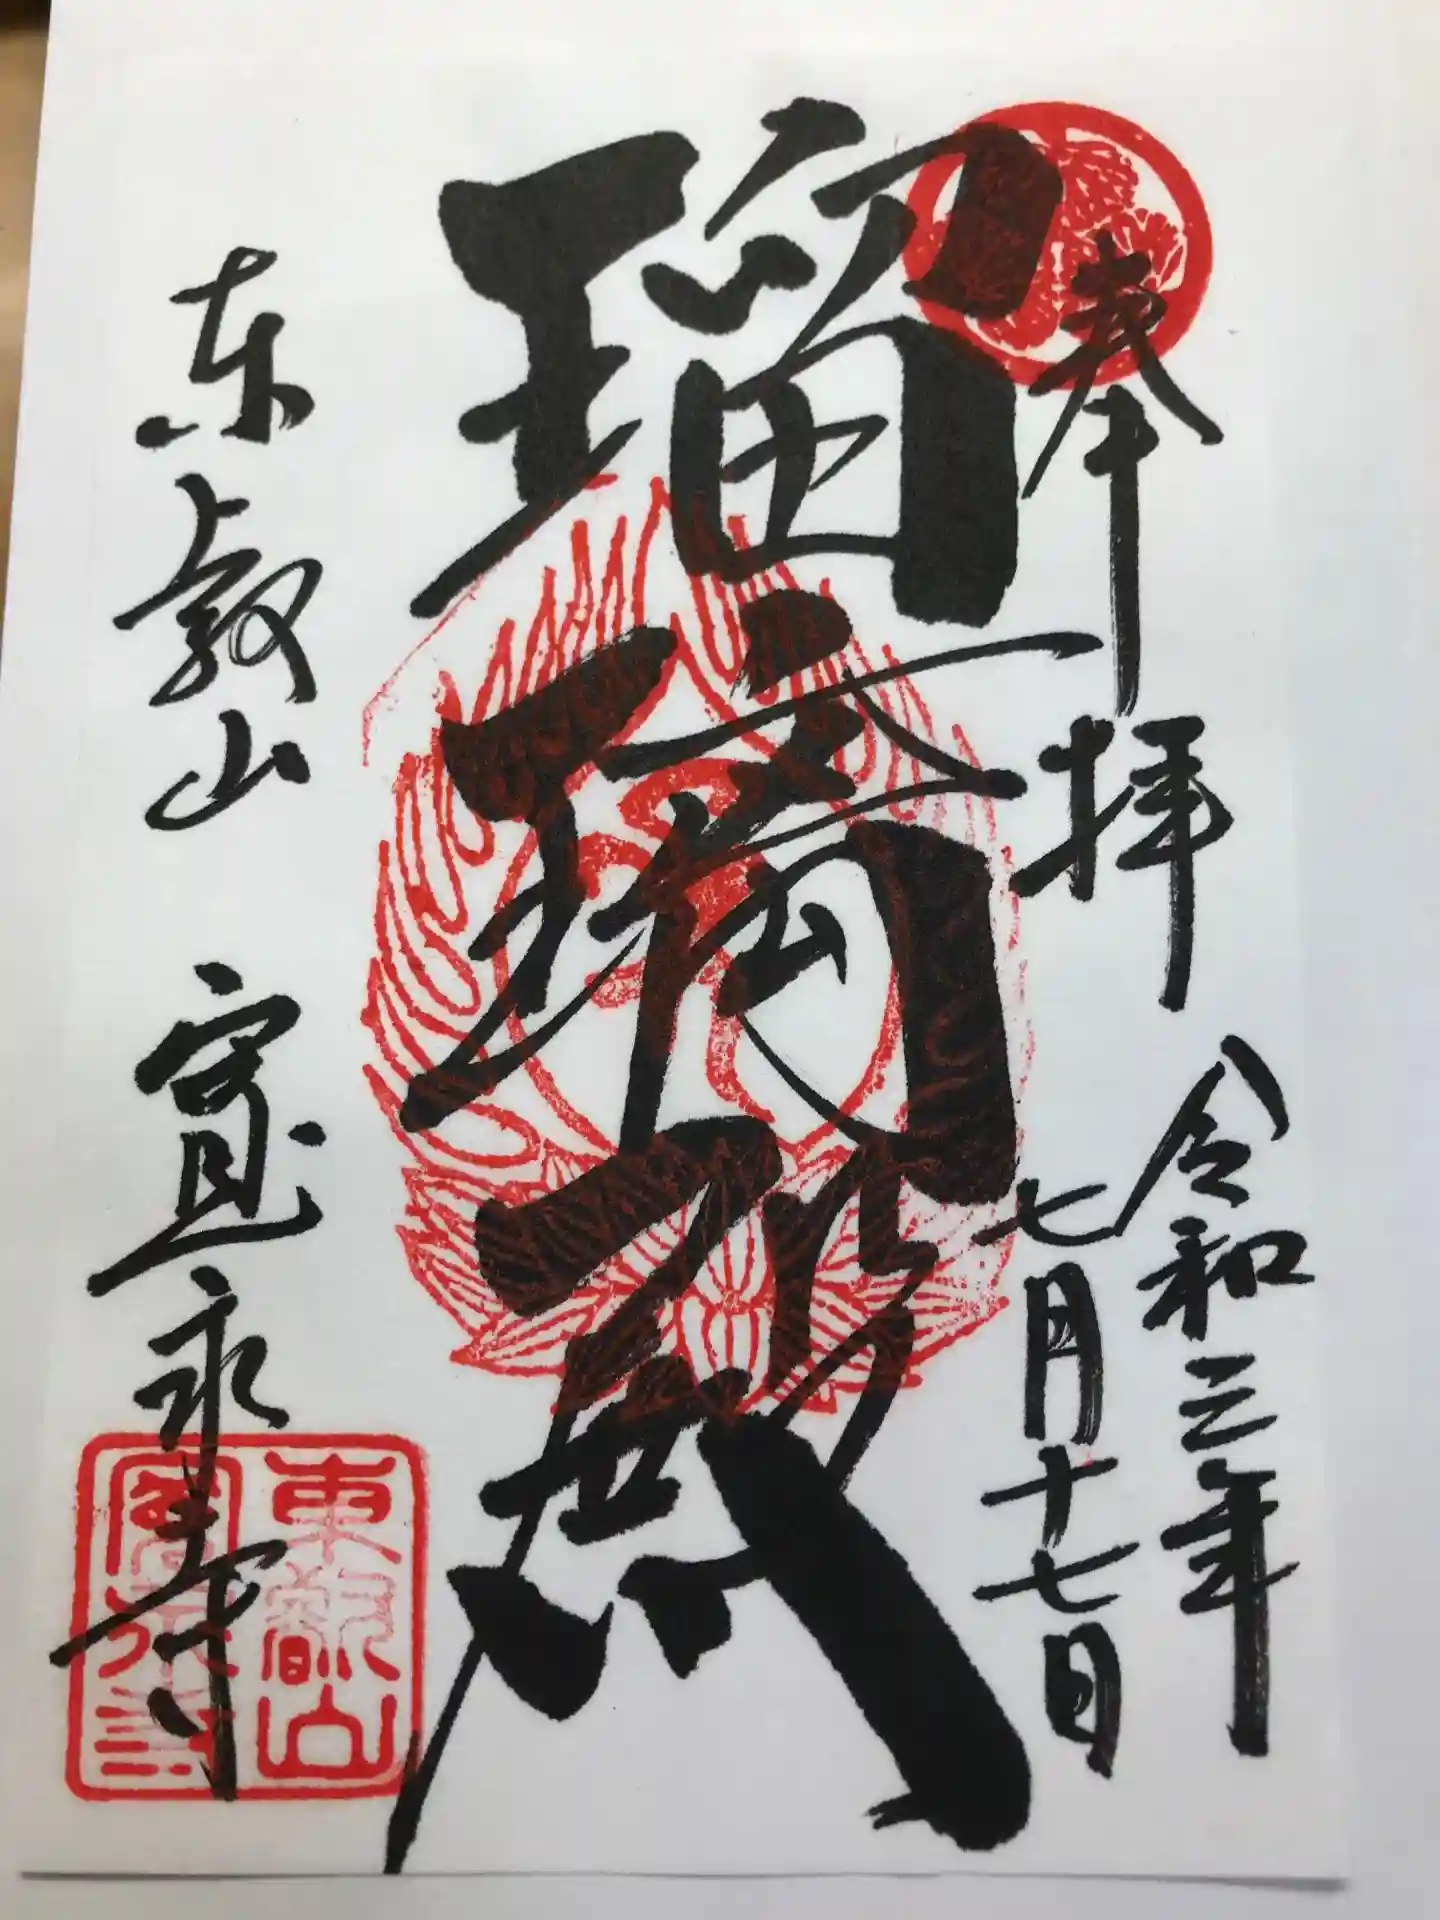 奉拝
令和三年
七月十七日
瑠璃殿
東叡山 寛永寺
東叡山
寛永寺